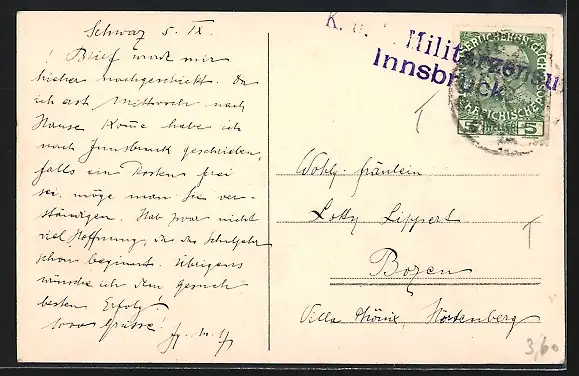 Schwaz 5. IX.
! Brief ward mir
hieher nachgeschickt. Da
ich erst Mittwoch nach
Hause komme habe ich
nach Innsbruck geschrieben,
falls ein Posten frei
sei, möge man Sie ver-
ständigen. Hab zwar nicht
viel Hoffnung, da das Schuljahr
schon beginnt. Übrigens
wünsche ich dem Gesuch
besten Erfolg!
Grüsse!
K. u. Militärzensur
Innsbruck
5 HELLER 5
Wohlg. Fräulein
Lotty Lippert
Bozen
Villa Hörtenberg
3,60